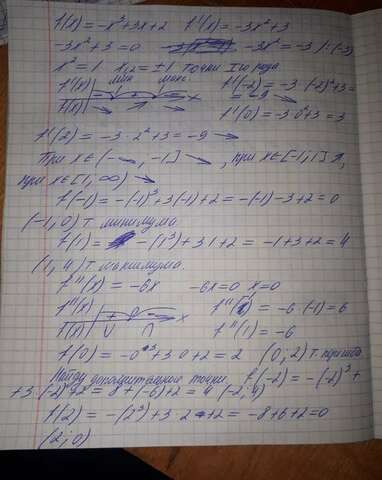 f(x) = -x³+3x+2   f'(x) = -3x²+3
-3x²+3=0   -3x² = -3 |:(-3)
x² = 1   x₁,₂ = ±1 точки I го рода
f'(x)   мин   макс   f'(-2) = -3·(-2)²+3 =
f(x)   x   = -9 ↘
f'(0) = -3·0²+3 = 3
f'(2) = -3·2²+3 = -9 ↘
При x∈(-∞, -1] ↘, при x∈[-1;1] ↗,
при x∈[1, ∞) ↘
f(-1) = -(-1)³+3(-1)+2 = -(-1)-3+2 = 0
(-1, 0) т. минимума
f(1) = -(1³)+3·1+2 = -1+3+2 = 4
(1, 4) т. максимума.
f''(x) = -6x   -6x=0   x=0
f''(x)   + 0 -   f''(-1) = -6·(-1) = 6
f(x)   ∪   ∩   x   f''(1) = -6
f(0) = -0³+3·0+2 = 2   (0; 2) т. перегиба
Найду дополнительные точки   f(-2) = -(-2)³+
+3·(-2)+2 = 8+(-6)+2 = 4   (-2; 4)
f(2) = -(2³)+3·2+2 = -8+6+2=0
(2; 0)